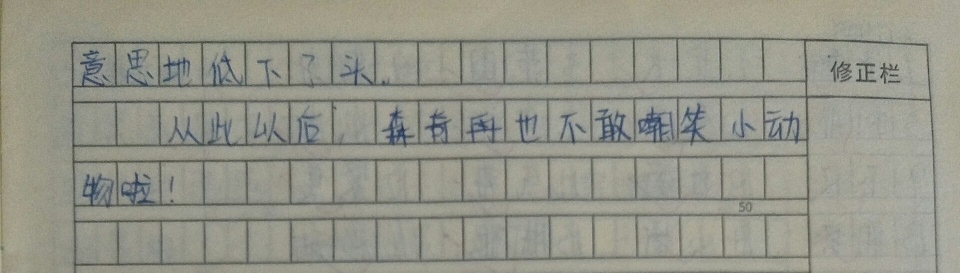 意思地低下了头。
修正栏
从此以后，森再也不敢嘲笑小动
物啦！
50